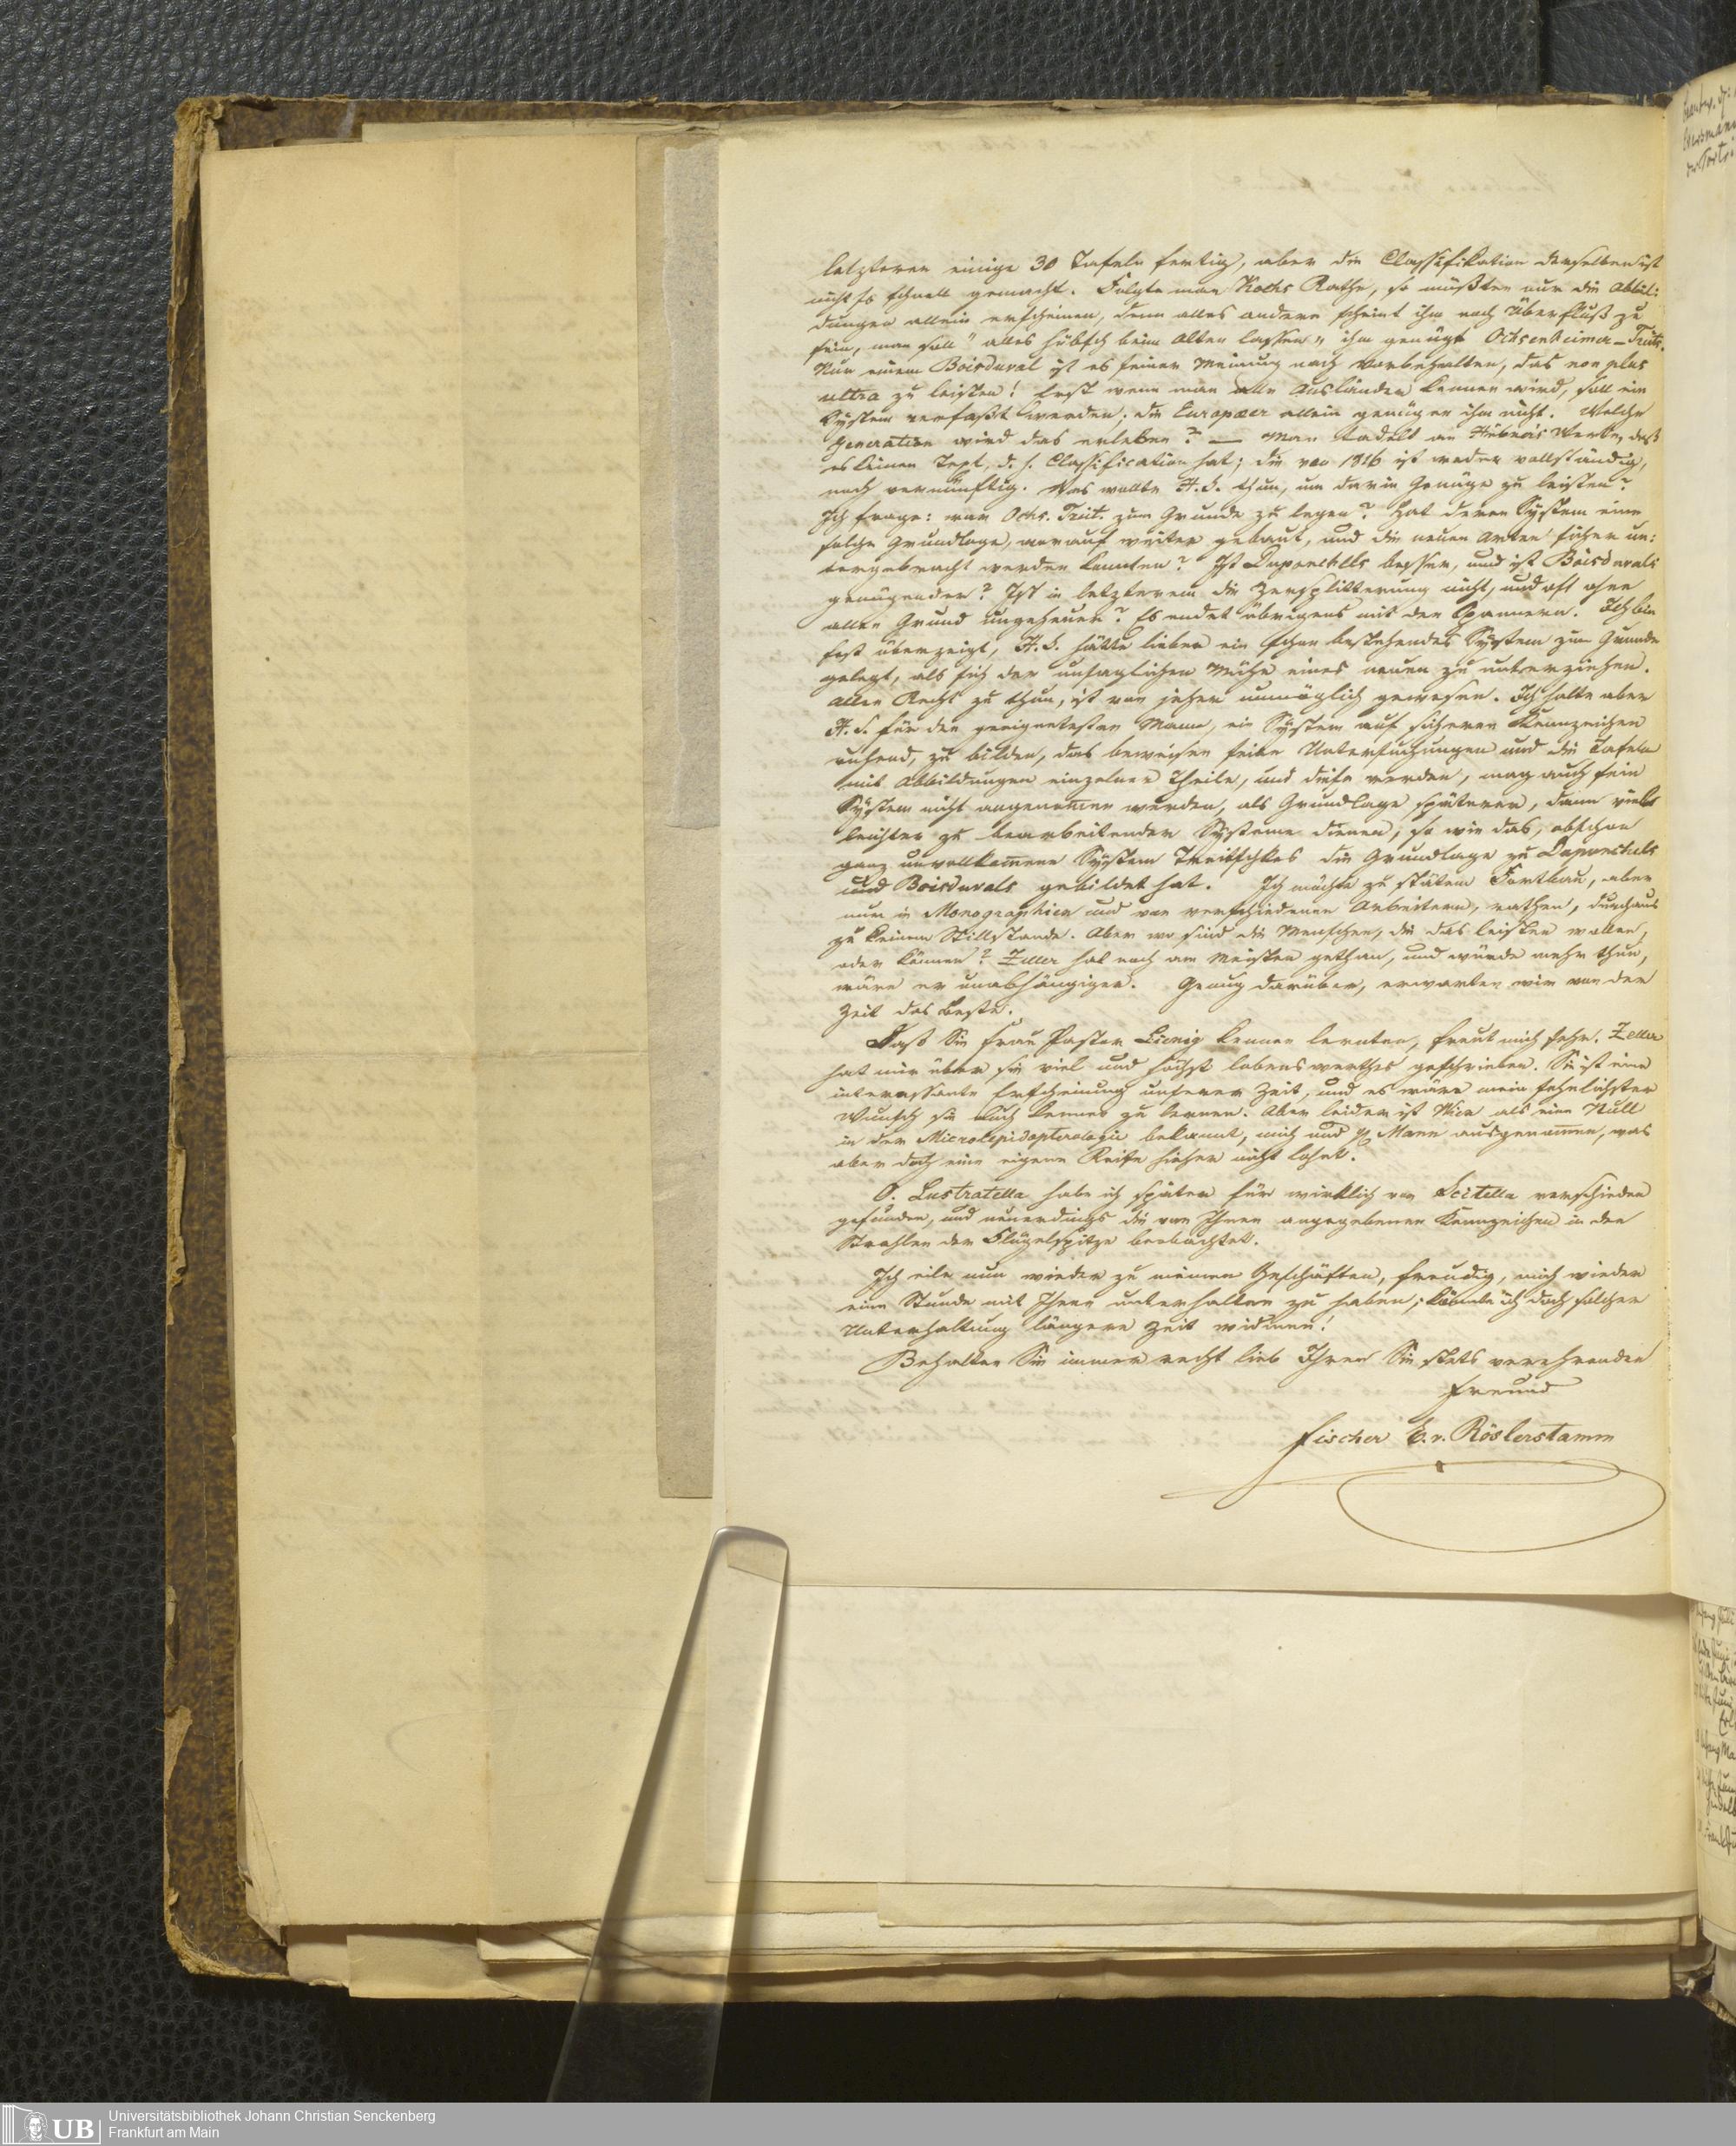 letzteren einige 30 Tafeln fertig, aber die Classifikation derselben ist
nicht so schnell gemacht. Folgte man Kochs Rathe, so müßten nur die Abbil:
dungen allein erscheinen, denn alles andere scheint ihm noch Überfluß zu
sein, man soll "alles hübsch beim Alten lassen" ihm genügt Ochsenheimer-Treits.
Nur einem Boisduval ist es seiner Meinung nach vorbehalten, das non plus
ultra zu leisten! Erst wenn man alle Ausländer kennen wird, soll ein
System verfaßt werden; die Europaeer allein genügen ihm nicht. Welche
Generation wird das erleben? — Man tadelt an Hübners Werke, daß
es keinen Text, d. h. Classification hat; die von 1816 ist weder vollständig,
noch vernünftig. Was wollte H.S. thun, um darin Genüge zu leisten?
Ich frage: war Ochs. Treit. zum Grunde zu legen? Hat deren System eine
solche Grundlage, worauf weiter gebaut, und die neuen Arten sicher un:
tergebracht werden konnten? Ist Duponchells besser, und ist Boisduvals
genügender? Ist in letzterem die Zersplitterung nicht, und oft ohne
allen Grund ungeheuer? Es endet übrigens mit den Spannern. Ich bin
fest überzeigt, H.S. hätte lieber ein schon bestehendes System zum Grunde
gelegt, als sich der unsaglichen Mühe eines neuen zu unterziehen.
Allen Recht zu thun, ist von jeher unmöglich gewesen. Ich halte aber
H.S. für den geeignetesten Mann, ein System auf sicheren Kennzeichen
ruhend, zu bilden, das beweisen seine Untersuchungen und die Tafeln
mit Abbildungen einzelner Theile, und diese werden, mag auch sein
System nicht angenommen werden, als Grundlage späterer, dann viel
leichter zu bearbeitender Systeme dienen; so wie das, obschon
ganz unvollkommene System Treitschkes die Grundlage zu Duponchels
und Boisduvals gebildet hat. Ich möchte zu stätem Fortbau, aber
nur in Monographien und von verschiedenen Arbeitern, rathen, durchaus
zu keinem Stillstande. Aber wo sind die Menschen, die das leisten wollen,
oder können? Zeller hat noch am Meisten gethan, und würde mehr thun,
wäre er unabhängiger. Genug darüber, erwarten wir von der
Zeit das Beste.
Daß Sie Frau Pastor Lienig kennen lernten, freut mich sehr. Zeller
hat mir über sie viel und höchst lobenswerthes geschrieben. Sie ist eine
interessante Erscheinung unserer Zeit, und es wäre mein sehnlichster
Wunsch sie auch kennen zu lernen. Aber leider ist Wien als eine Null
in der Microlepidopterologie bekannt, mich und H. Mann ausgenommen, was
aber doch eine eigene Reise hieher nicht lohnt.
O. Lustratella habe ich später für wirklich von Scitella verschieden
gefunden, und neuerdings die von Ihnen angegebenen Kennzeichen in den
Strahlen der Flügelspitze beobachtet.
Ich eile nun wieder zu meinen Geschäften, freudig, mich wieder
eine Stunde mit Ihnen unterhalten zu haben; könnte ich doch solcher
Unterhaltung längere Zeit widmen!
Behalten Sie immer recht lieb Ihren Sie stets verehrenden
Freund
Fischer E. v. Röslerstamm
UB Universitätsbibliothek Johann Christian Senckenberg
Frankfurt am Main